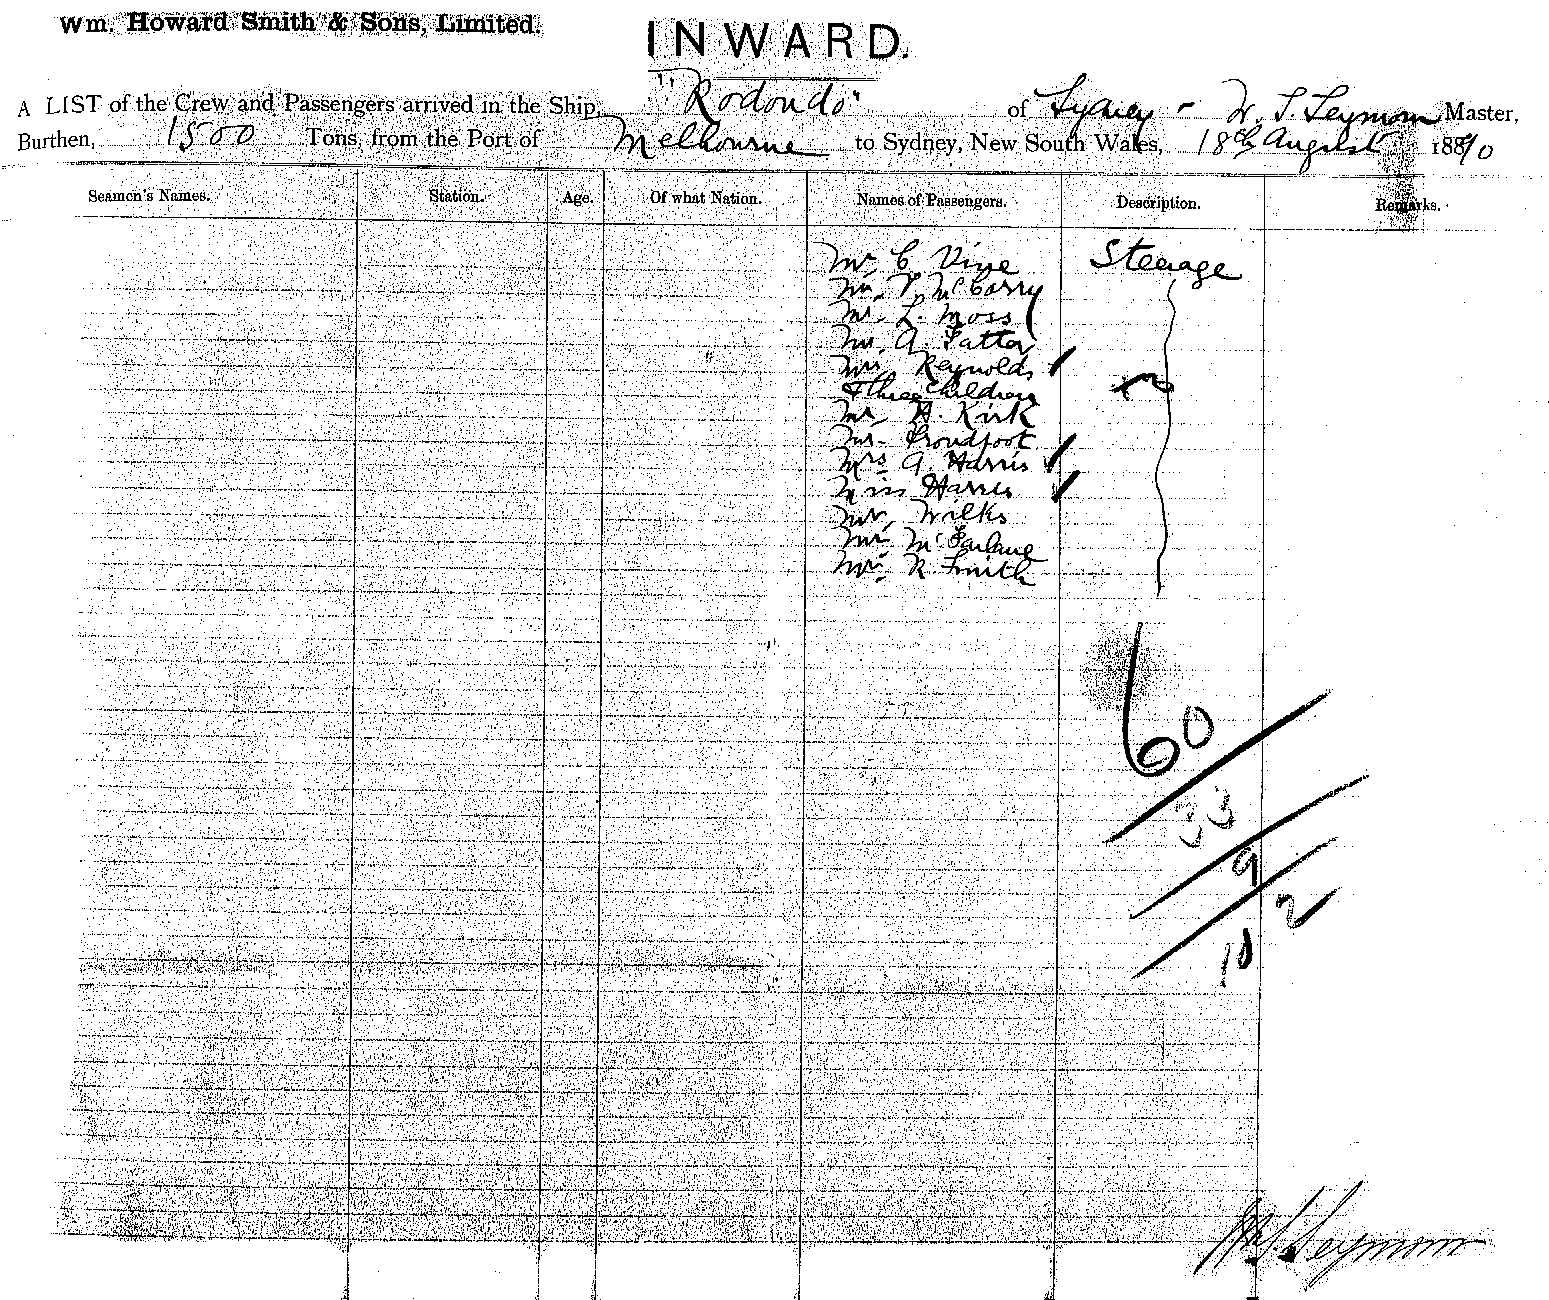 Wm. Howard Smith & Sons, Limited.
INWARD.
A LIST of the Crew and Passengers arrived in the Ship, "Rodondo" of Sydney - W. S. Seymour Master,
Burthen, 1500 Tons, from the Port of Melbourne to Sydney, New South Wales, 18th August 1890
Seamen's Names. Station. Age. Of what Nation. Names of Passengers. Description. Remarks.
Mr C. Vine Steerage
Mr. McGarry
Mr. L. Moss
Mr. A.
Mrs Reynolds
& three Children
Mr H. Kirk
Mr. Proudfoot
Mrs A. Harris
Miss Harris
Mr. Wilks
Mr. McFarlane
Mr. R. Smith
60
33
9
2
10
Seymour